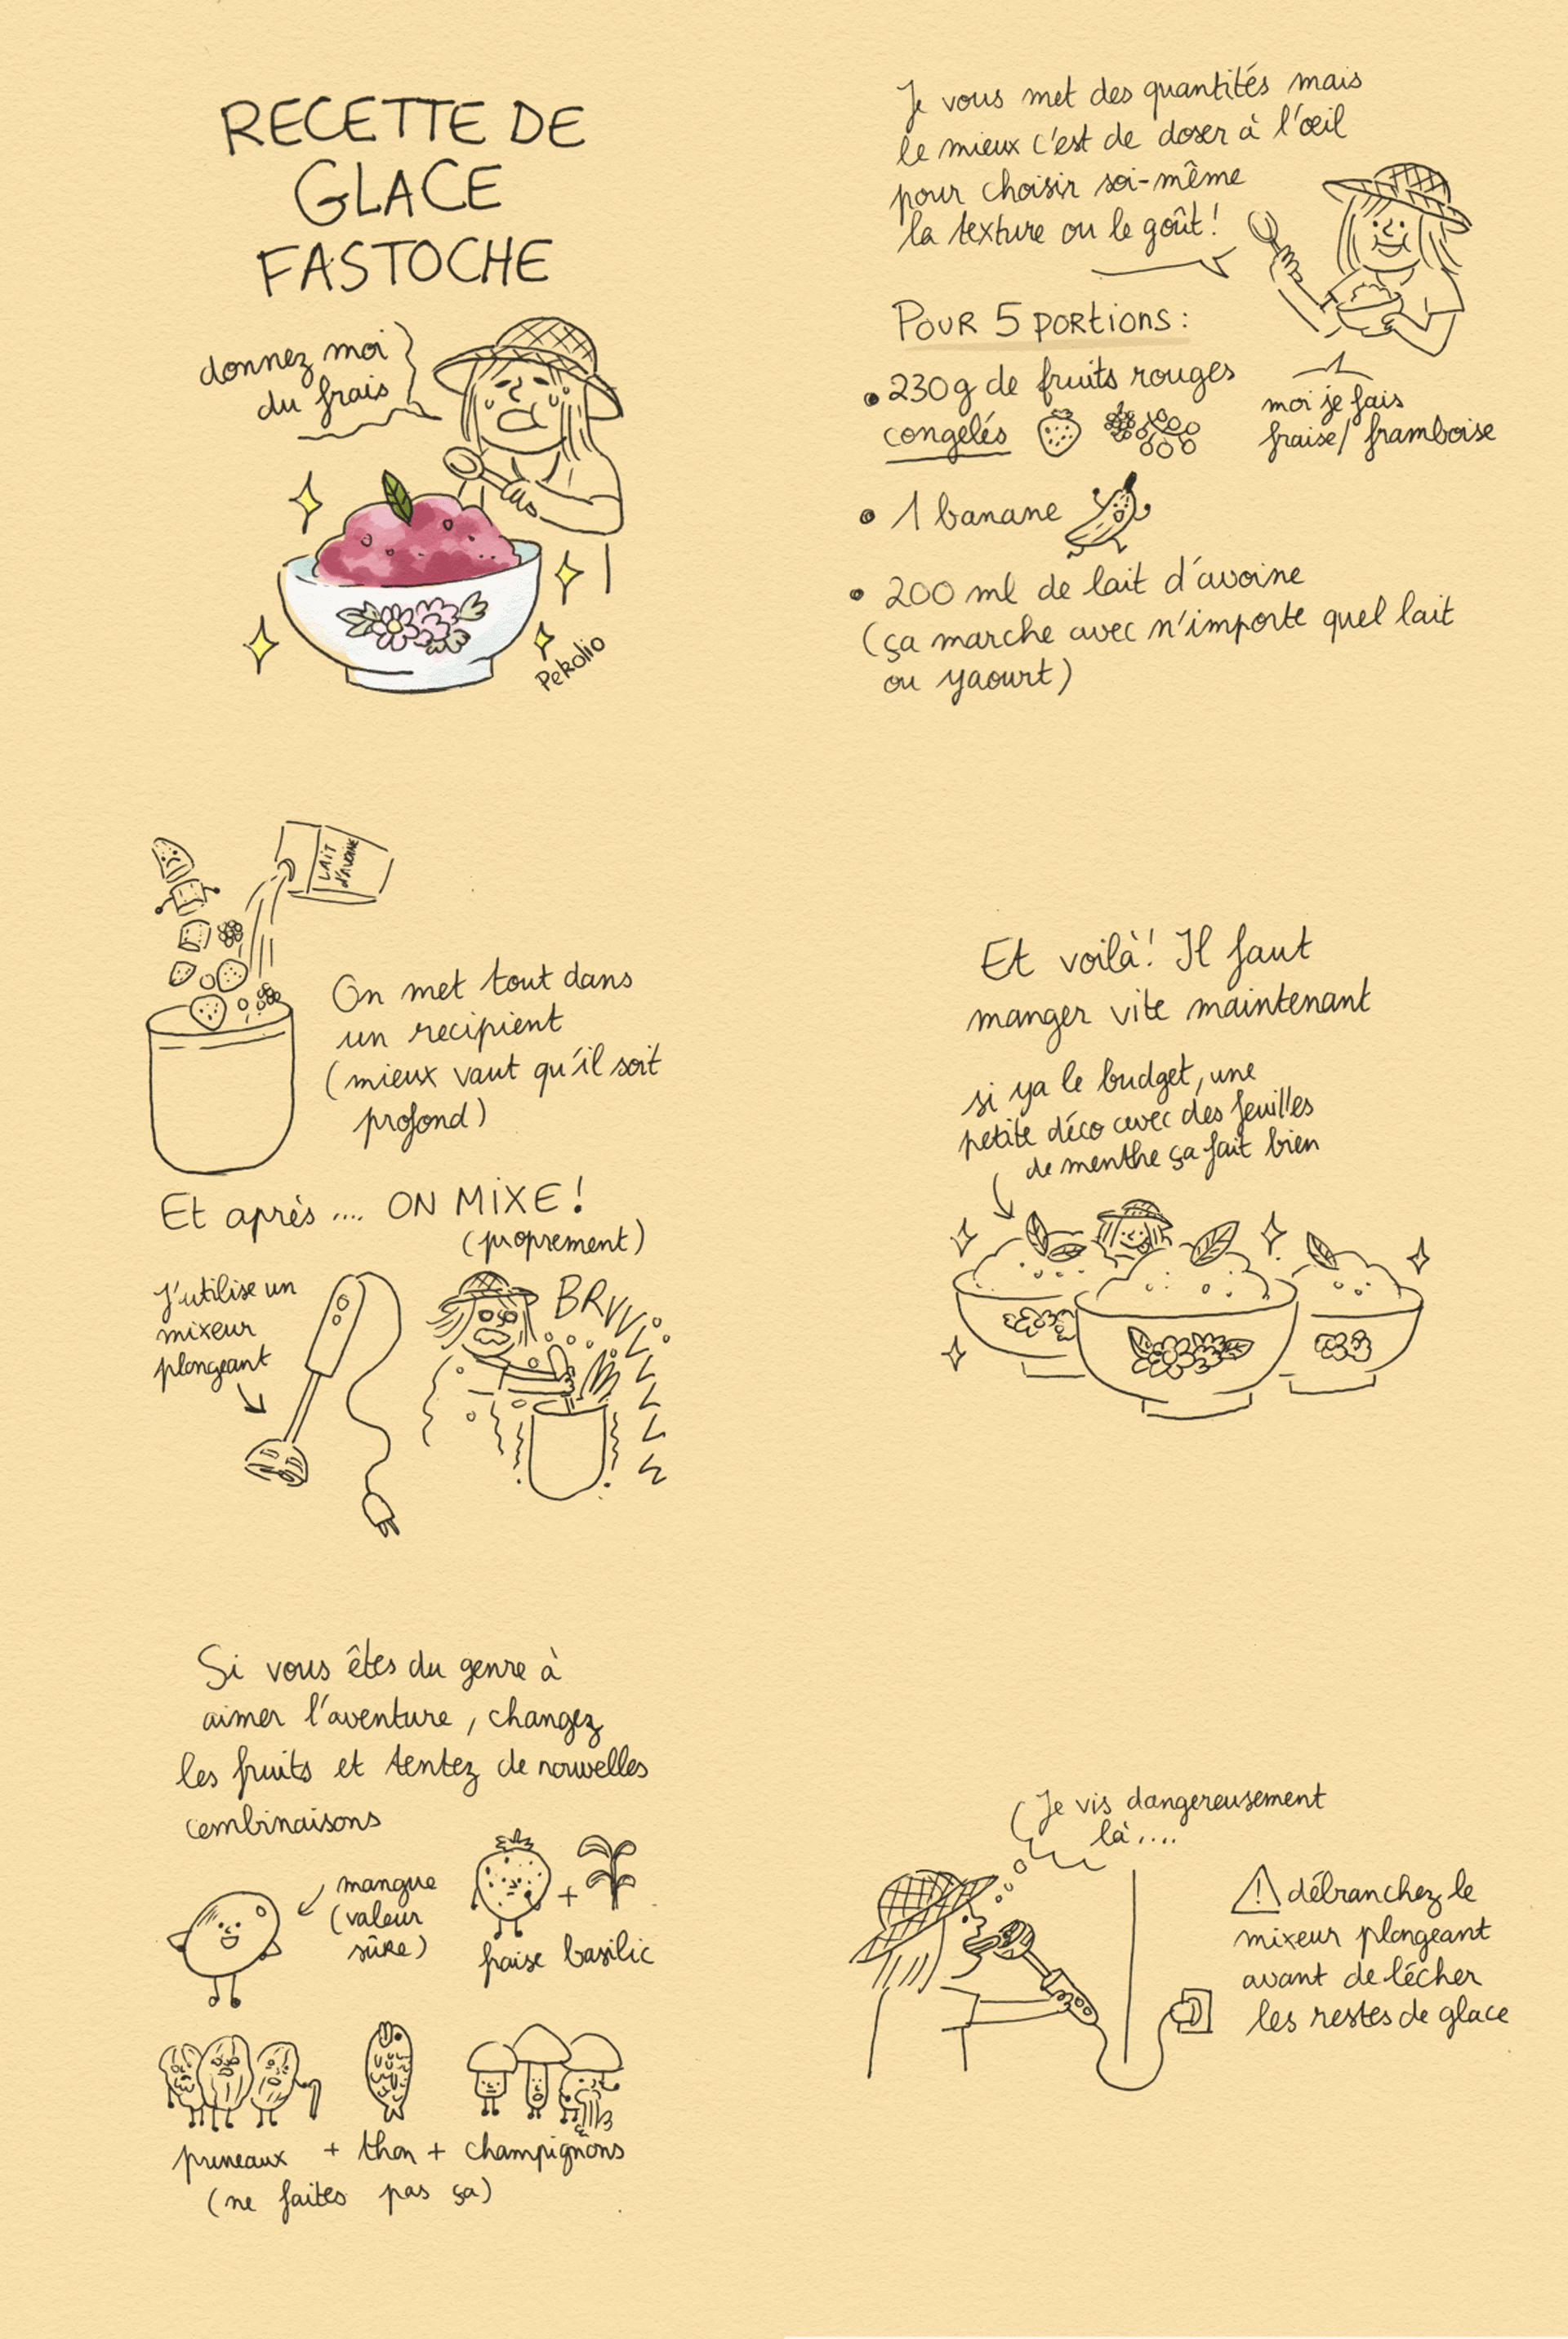 RECETTE DE
GLACE
FASTOCHE
donnez moi
du frais
Pekolio
Je vous met des quantités mais
le mieux c'est de doser à l'œil
pour choisir soi-même
la texture ou le goût !
POUR 5 PORTIONS :
• 230g de fruits rouges
congelés
moi je fais
fraise / framboise
• 1 banane
• 200 ml de lait d'avoine
(ça marche avec n'importe quel lait
ou yaourt)
LAIT
D'AVOINE
On met tout dans
un recipient
(mieux vaut qu'il soit
profond)
Et après .... ON MIXE !
(proprement)
J'utilise un
mixeur
plongeant
BRVVV
Et voilà ! Il faut
manger vite maintenant
si ya le budget, une
petite déco avec des feuilles
de menthe ça fait bien
Si vous êtes du genre à
aimer l'aventure, changez
les fruits et tentez de nouvelles
combinaisons
mangue
(valeur
sûre)
+
fraise basilic
pruneaux + thon + champignons
(ne faites pas ça)
Je vis dangereusement
là ....
⚠ débranchez le
mixeur plongeant
avant de lécher
les restes de glace